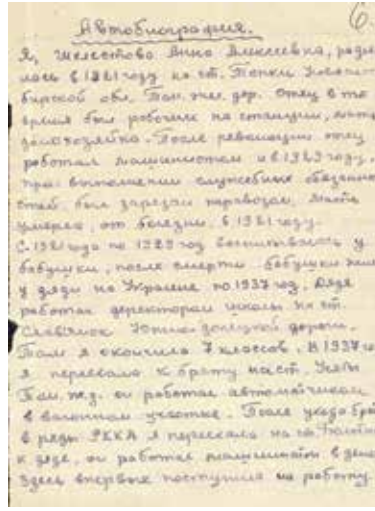 6.
Автобиография.
Я, Шелестова Анна Алексеевна, роди
лась в 1921 году на ст. Топки Новоси-
бирской обл. Том. жел. дор. Отец в то
время был рабочим на станции, мать
домохозяйка. После революции отец
работал машинистом и в 1929 году,
при выполнении служебных обязанно
стей, был зарезан паровозом. Мать
умерла, от болезни, в 1921 году.
С 1921 года по 1929 год воспитывалась у
бабушки, после смерти бабушки жила
у дяди на Украине по 1937 год. Дядя
работал директором школы на ст.
Славянск Южно-Донецкой дороги.
Там я окончила 7 классов. В 1937 го
я переехала к брату на ст.
Том. ж.д. он работал автоматчиком
в вагонном участке. После ухода брата
в ряды РККА я переехала на ст.
к дяде, он работал машинистом в депо
Здесь впервые поступила на работу